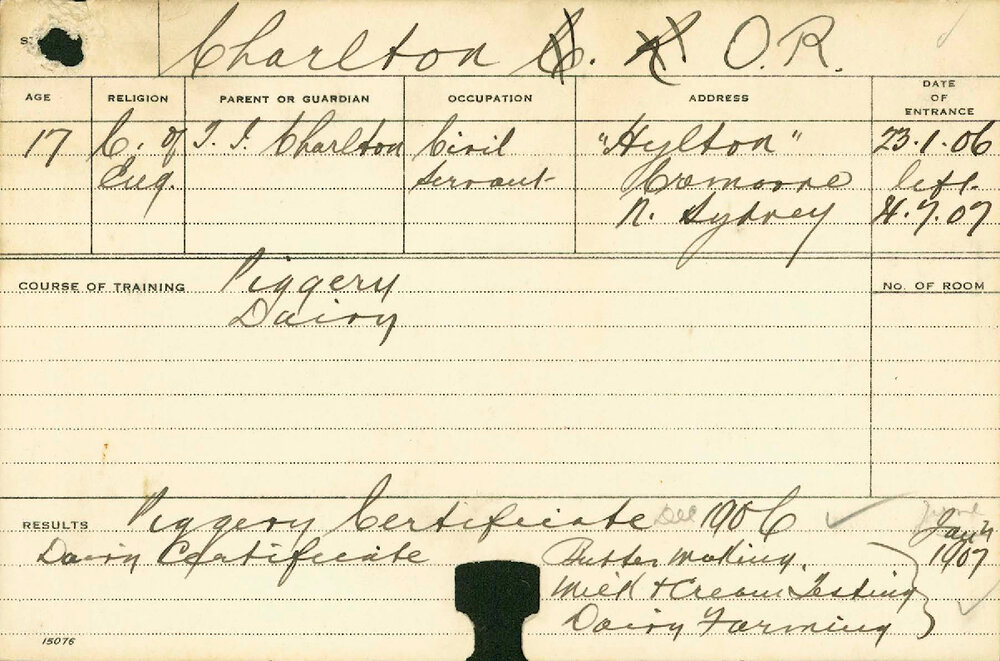 Charlton O.R.
AGE RELIGION PARENT OR GUARDIAN OCCUPATION ADDRESS DATE OF ENTRANCE
17 C. of T. J. Charlton Civil "Hylton" 23.1.06
Eng. Servant left
N. Sydney 4.7.07
COURSE OF TRAINING Piggery No. OF ROOM
Dairy
RESULTS Piggery Certificate Dec 1906
Dairy Certificate Butter Making. 1907
Milk & Cream Testing
Dairy Farming
15076